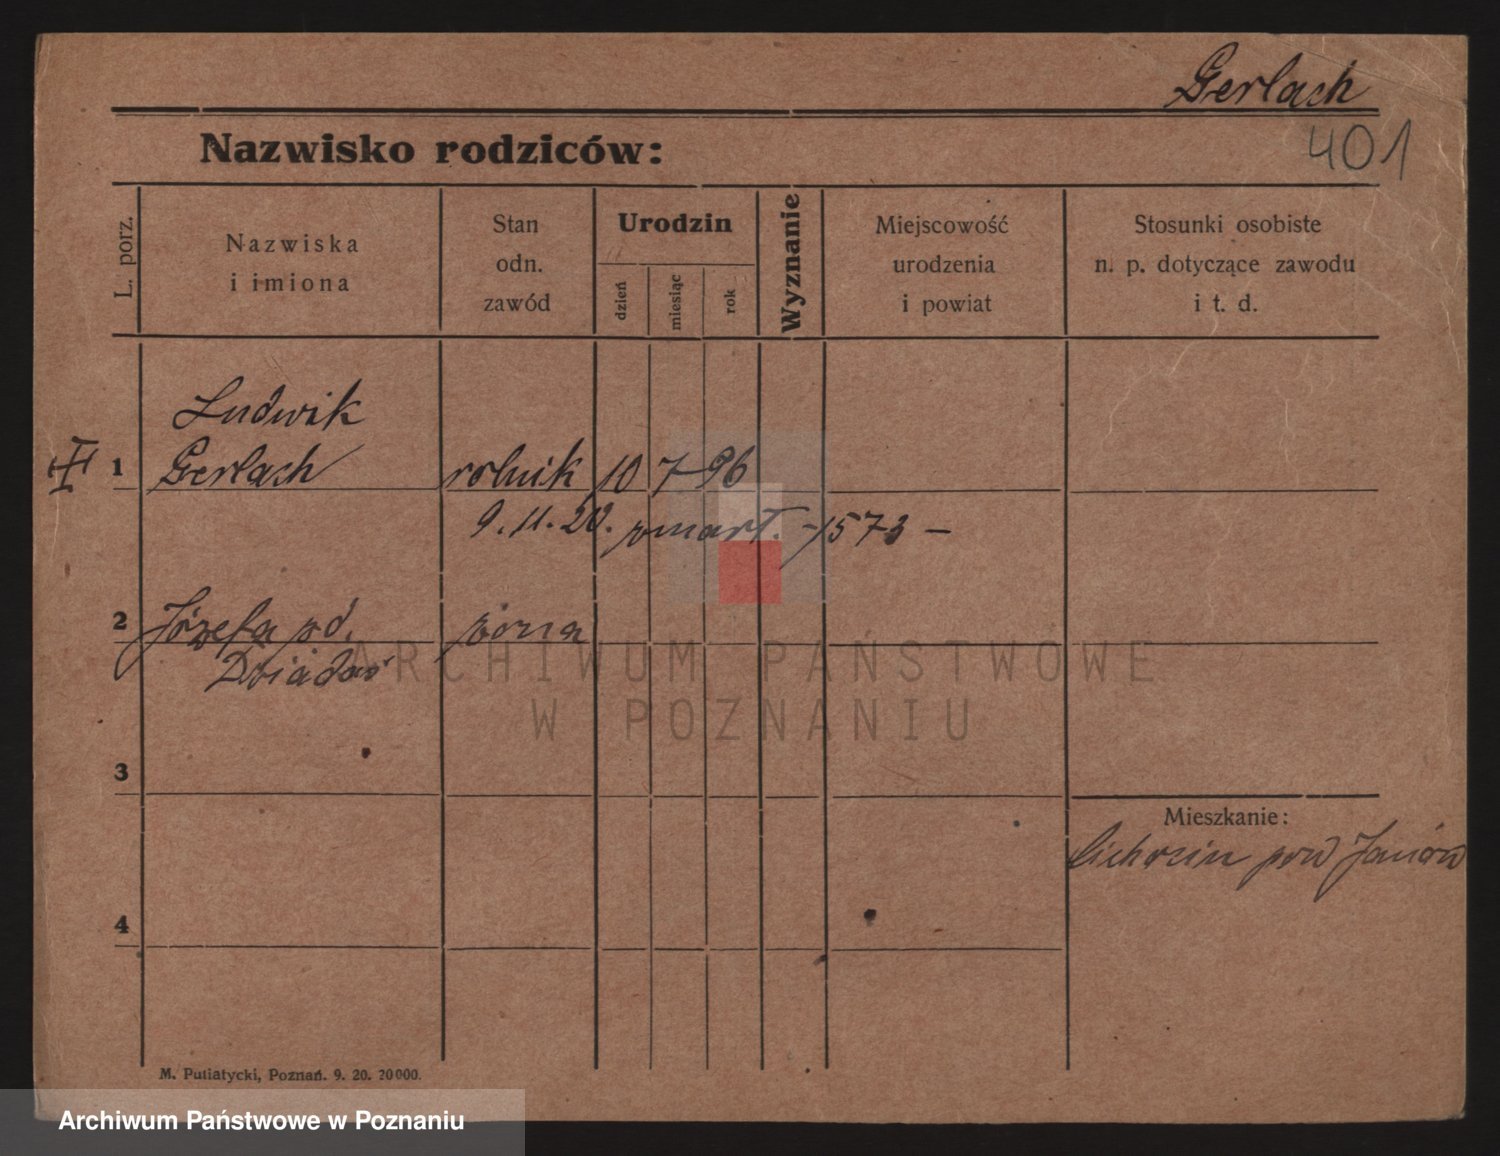 Gerlach
401
Nazwisko rodziców:
L. porz.
Nazwiska
i imiona
Stan
odn.
zawód
Urodzin
dzień
miesiąc
rok
Wyznanie
Miejscowość
urodzenia
i powiat
Stosunki osobiste
n. p. dotyczące zawodu
i t. d.
Ludwik
1 Gerlach rolnik 10 7 96
9. 11. 20. zmarł. - 1573 -
2 Józefa żona
ARCHIWUM PAŃSTWOWE
W POZNANIU
3
Mieszkanie:
pow Janów
4
M. Putiatycki, Poznań. 9. 20. 20000.
Archiwum Państwowe w Poznaniu